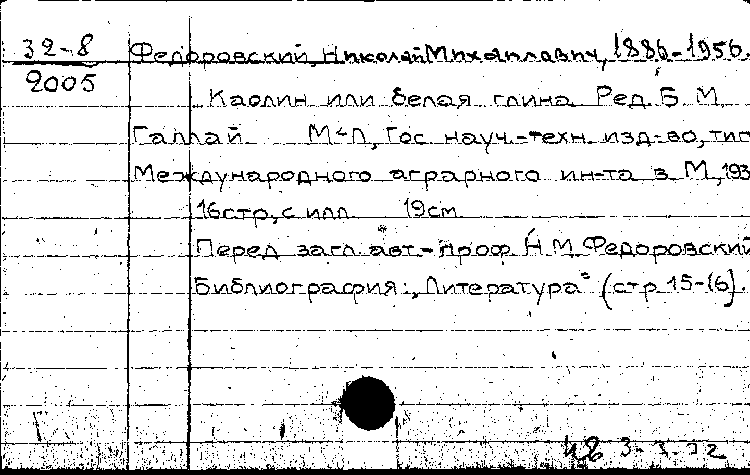 32-8
2005
Федоровский, Николай Михайлович, 1886-1956.
Каолин или белая глина. Ред. Б. М.
Галлай. М-Л, Гос. науч.-техн. изд-во, тип.
Международного аграрного ин-та в М, 193
16стр, с илл. 19см.
Перед загл. авт.- проф. Н.М. Федоровский
Библиография: „Литература" (стр 15-16).